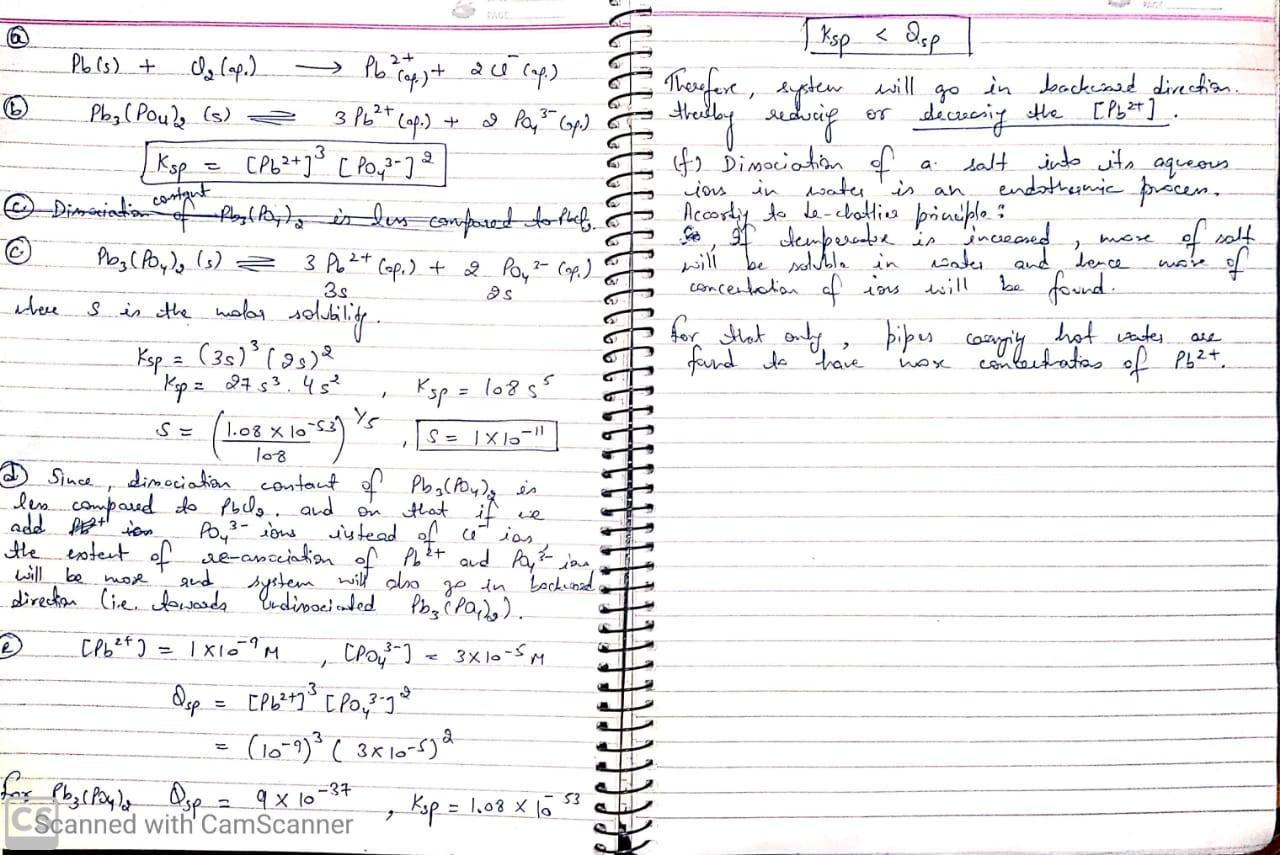 PAGE
(a)
Pb(s) + Cl₂(aq.) ⟶ Pb²⁺(aq.) + 2Cl⁻(aq.)
(b) Pb₃(PO₄)₂ (s) ⇌ 3 Pb²⁺(aq.) + 2 PO₄³⁻(aq.)
Ksp = [Pb²⁺]³ [PO₄³⁻]²
(c) Dissociation constant of Pb₃(PO₄)₂ is less compared to PbCl₂.
(c) Pb₃(PO₄)₂ (s) ⇌ 3 Pb²⁺(aq.) + 2 PO₄³⁻(aq.)
3s 2s
where S is the molar solubility.
Ksp = (3s)³ (2s)²
Ksp = 27s³. 4s² , Ksp = 108 s⁵
S = (1.08 × 10⁻⁵³ / 108)^1/5 , S = 1×10⁻¹¹
(d) Since, dissociation contant of Pb₃(PO₄)₂ is
less compared to PbCl₂. and on that if we
add Pb²⁺ ion PO₄³⁻ ions instead of Cl⁻ ion,
the extent of re-association of Pb²⁺ and PO₄³⁻ ion
will be more and system will also go in backward
direction (i.e. towards undissociated Pb₃(PO₄)₂).
(e) [Pb²⁺] = 1×10⁻⁹ M , [PO₄³⁻] = 3×10⁻⁵ M
Qsp = [Pb²⁺]³ [PO₄³⁻]²
= (10⁻⁹)³ (3×10⁻⁵)²
for Pb₃(PO₄)₂ Qsp = 9 × 10⁻³⁷ , Ksp = 1.08 × 10⁻⁵³
CS Scanned with CamScanner
PAGE
Ksp < Qsp
Therefore, system will go in backward direction.
thereby reducing or decreasing the [Pb²⁺].
(f) Dissociation of a salt into its aqueous
ions in water is an endothermic process.
According to Le-chatlier principle :
So, If temperature is increased, more of salt
will be soluble in water and hence more of
concentration of ions will be found.
For that only, pipes carrying hot water are
found to have more concentration of Pb²⁺.